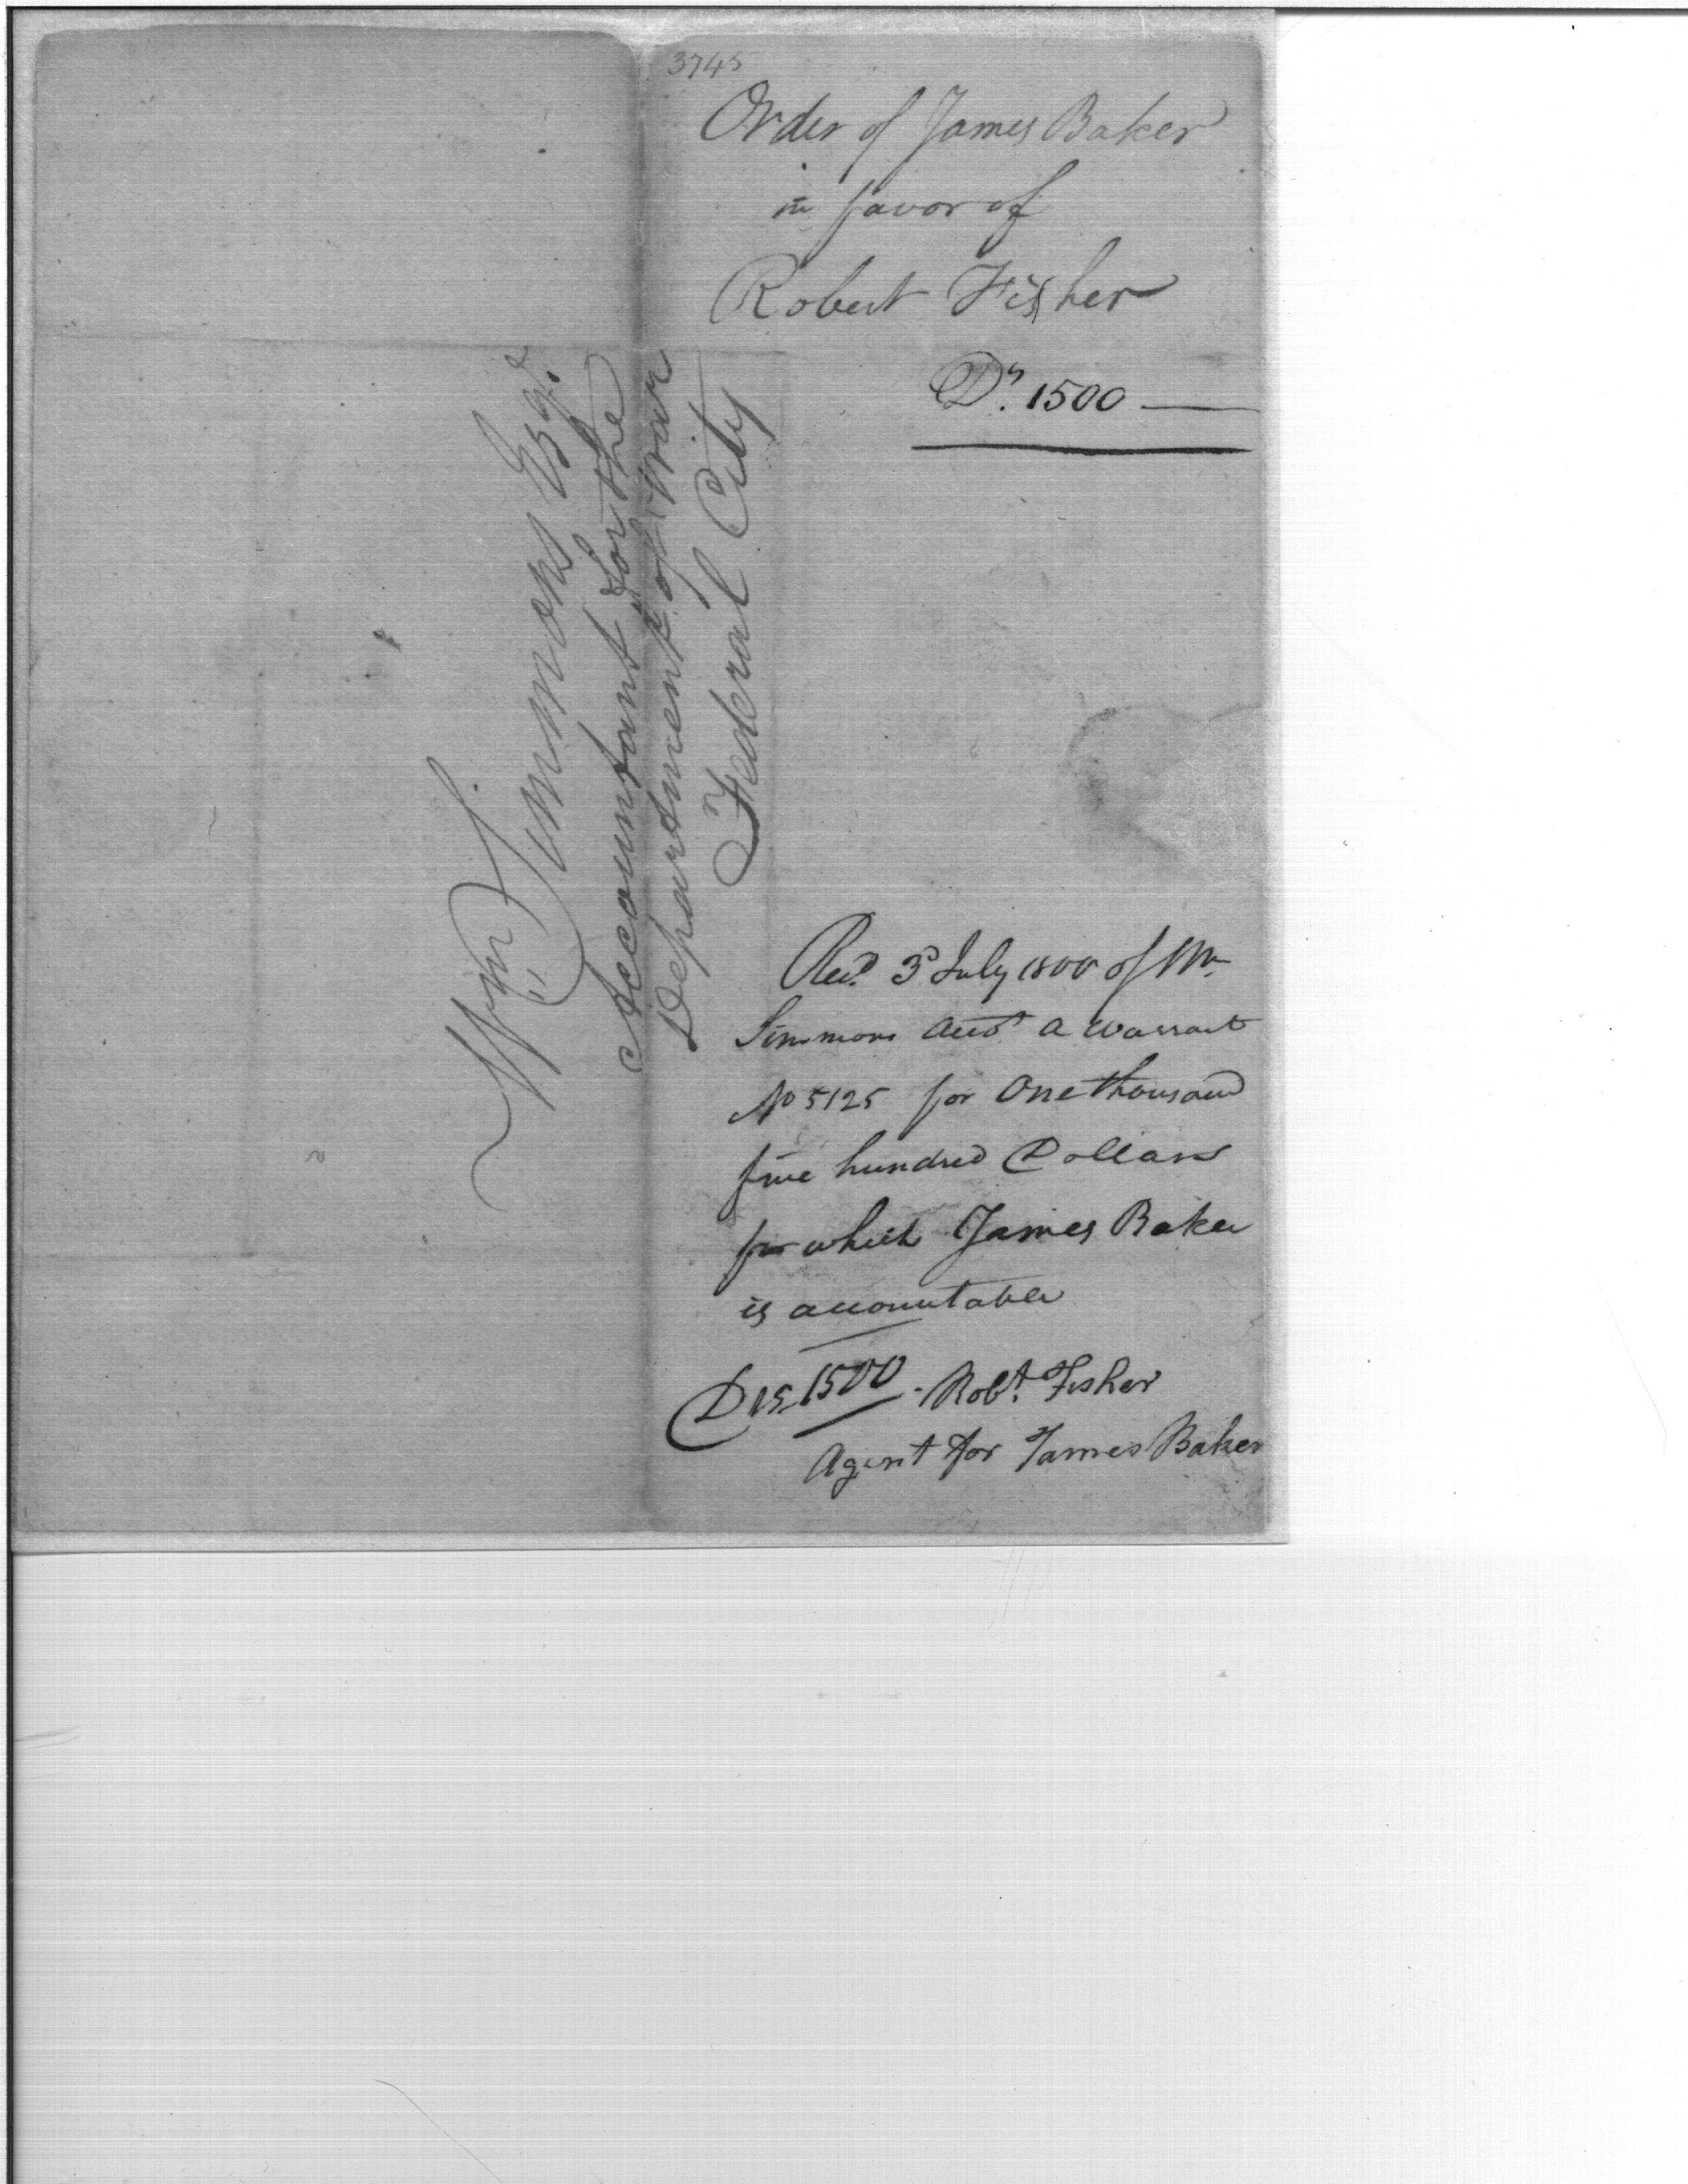 3745
Order of James Baker
in favor of
Robert Fisher
Ds. 1500
Wm Simmons Esqr.
Accountant for the
Department of War
Federal City
Recd. 3d July 1800 of Mr
Simmons Acct a warrant
No 5125 for One thousand
five hundred Dollars
for which James Baker
is accountable
Drs 1500. Robt. Fisher
Agent for James Baker